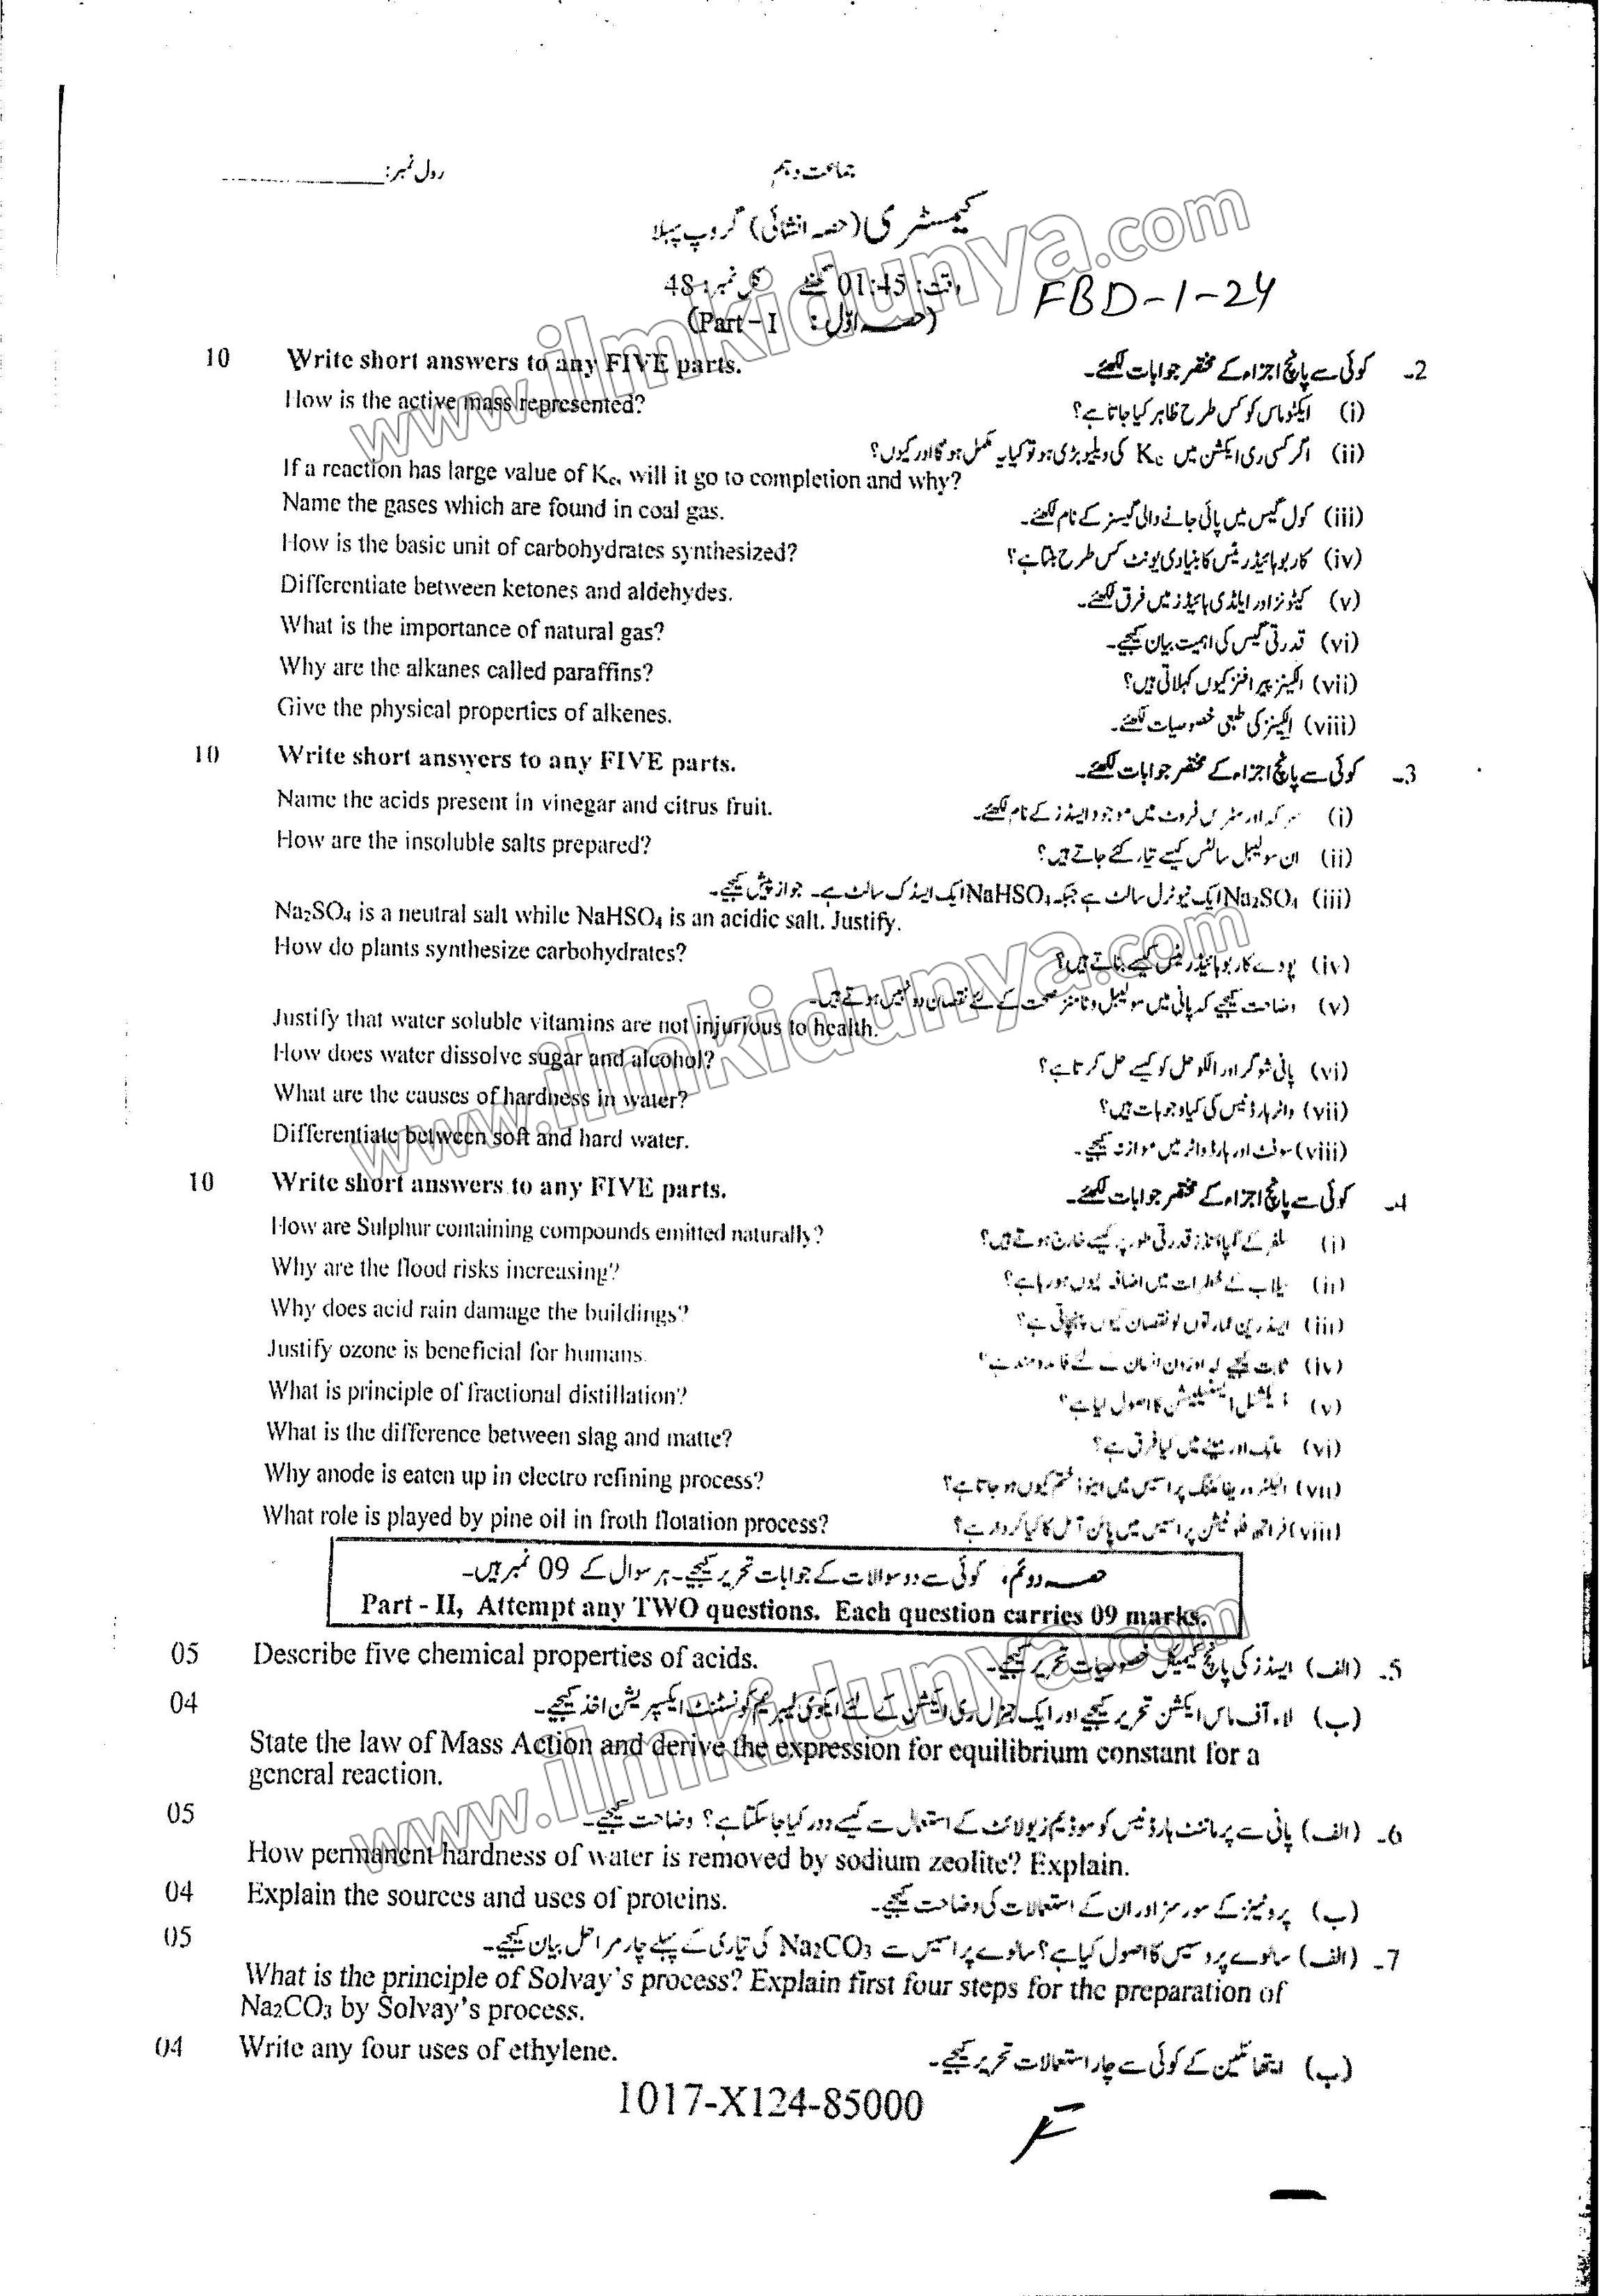 جماعت دہم
رول نمبر:
کیمسٹری (حصہ انشائی) گروپ پہلا
وقت: 01:45 گھنٹے کل نمبر: 48
FBD-1-24
(حصہ اوّل : Part-I)
10 Write short answers to any FIVE parts. کوئی سے پانچ اجزاء کے مختصر جوابات لکھئے۔ 2۔
How is the active mass represented? (i) ایکٹو ماس کو کس طرح ظاہر کیا جاتا ہے؟
(ii) اگر کسی ری ایکشن میں Kc کی ویلیو بڑی ہو تو کیا یہ مکمل ہوگا اور کیوں؟
If a reaction has large value of Kc, will it go to completion and why?
Name the gases which are found in coal gas. (iii) کول گیس میں پائی جانے والی گیسز کے نام لکھئے۔
How is the basic unit of carbohydrates synthesized? (iv) کاربوہائیڈریٹس کا بنیادی یونٹ کس طرح بنتا ہے؟
Differentiate between ketones and aldehydes. (v) کیٹونز اور ایلڈی ہائیڈز میں فرق لکھئے۔
What is the importance of natural gas? (vi) قدرتی گیس کی اہمیت بیان کیجیے۔
Why are the alkanes called paraffins? (vii) الکینز پیرافنز کیوں کہلاتی ہیں؟
Give the physical properties of alkenes. (viii) الکینز کی طبعی خصوصیات لکھئے۔
10 Write short answers to any FIVE parts. کوئی سے پانچ اجزاء کے مختصر جوابات لکھئے۔ 3۔
Name the acids present in vinegar and citrus fruit. (i) سرکہ اور سٹرس فروٹ میں موجود ایسڈز کے نام لکھئے۔
How are the insoluble salts prepared? (ii) ان سولیبل سالٹس کیسے تیار کئے جاتے ہیں؟
(iii) Na₂SO₄ ایک نیوٹرل سالٹ ہے جبکہ NaHSO₄ ایک ایسڈک سالٹ ہے۔ جواز پیش کیجیے۔
Na₂SO₄ is a neutral salt while NaHSO₄ is an acidic salt. Justify.
How do plants synthesize carbohydrates? (iv) پودے کاربوہائیڈریٹس کیسے بناتے ہیں؟
(v) وضاحت کیجیے کہ پانی میں سولیبل وٹامنز صحت کے لئے نقصان دہ نہیں ہوتے ہیں۔
Justify that water soluble vitamins are not injurious to health.
How does water dissolve sugar and alcohol? (vi) پانی شوگر اور الکوحل کو کیسے حل کرتا ہے؟
What are the causes of hardness in water? (vii) واٹر ہارڈنیس کی کیا وجوہات ہیں؟
Differentiate between soft and hard water. (viii) سوفٹ اور ہارڈ واٹر میں موازنہ کیجیے۔
10 Write short answers to any FIVE parts. کوئی سے پانچ اجزاء کے مختصر جوابات لکھئے۔ 4۔
How are Sulphur containing compounds emitted naturally? (i) سلفر کے کمپاؤنڈز قدرتی طور پر کیسے خارج ہوتے ہیں؟
Why are the flood risks increasing? (ii) سیلاب کے خطرات میں اضافہ کیوں ہو رہا ہے؟
Why does acid rain damage the buildings? (iii) ایسڈ رین عمارتوں کو نقصان کیوں پہنچاتی ہے؟
Justify ozone is beneficial for humans. (iv) ثابت کیجیے کہ اوزون انسان کے لئے فائدہ مند ہے؟
What is principle of fractional distillation? (v) فریکشنل ڈسٹیلیشن کا اصول کیا ہے؟
What is the difference between slag and matte? (vi) سلیگ اور میٹے میں کیا فرق ہے؟
Why anode is eaten up in electro refining process? (vii) الیکٹرو ریفائننگ پراسیس میں اینوڈ ختم کیوں ہو جاتا ہے؟
What role is played by pine oil in froth flotation process? (viii) فراتھ فلوٹیشن پراسیس میں پائن آئل کا کیا کردار ہے؟
حصہ دوئم، کوئی سے دو سوالات کے جوابات تحریر کیجیے۔ ہر سوال کے 09 نمبر ہیں۔
Part - II, Attempt any TWO questions. Each question carries 09 marks.
05 Describe five chemical properties of acids. 5۔ (الف) ایسڈز کی پانچ کیمیکل خصوصیات تحریر کیجیے۔
04 (ب) لاء آف ماس ایکشن تحریر کیجیے اور ایک جنرل ری ایکشن کے لئے ایکوی لبریم کونسٹنٹ ایکسپریشن اخذ کیجیے۔
State the law of Mass Action and derive the expression for equilibrium constant for a
general reaction.
05 6۔ (الف) پانی سے پرماننٹ ہارڈنیس کو سوڈیم زیولائٹ کے استعمال سے کیسے دور کیا جا سکتا ہے؟ وضاحت کیجیے۔
How permanent hardness of water is removed by sodium zeolite? Explain.
04 Explain the sources and uses of proteins. (ب) پروٹینز کے سورسز اور ان کے استعمالات کی وضاحت کیجیے۔
05 7۔ (الف) سالوے پروسیس کا اصول کیا ہے؟ سالوے پراسیس سے Na₂CO₃ کی تیاری کے پہلے چار مراحل بیان کیجیے۔
What is the principle of Solvay's process? Explain first four steps for the preparation of
Na₂CO₃ by Solvay's process.
04 Write any four uses of ethylene. (ب) ایتھائلین کے کوئی سے چار استعمالات تحریر کیجیے۔
1017-X124-85000
www.ilmkidunya.com
www.ilmkidunya.com
www.ilmkidunya.com